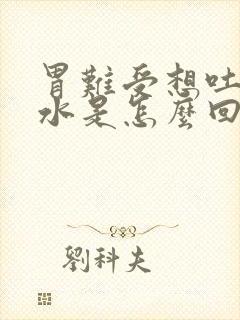 胃難受想吐
水是怎麼回
劉科夫